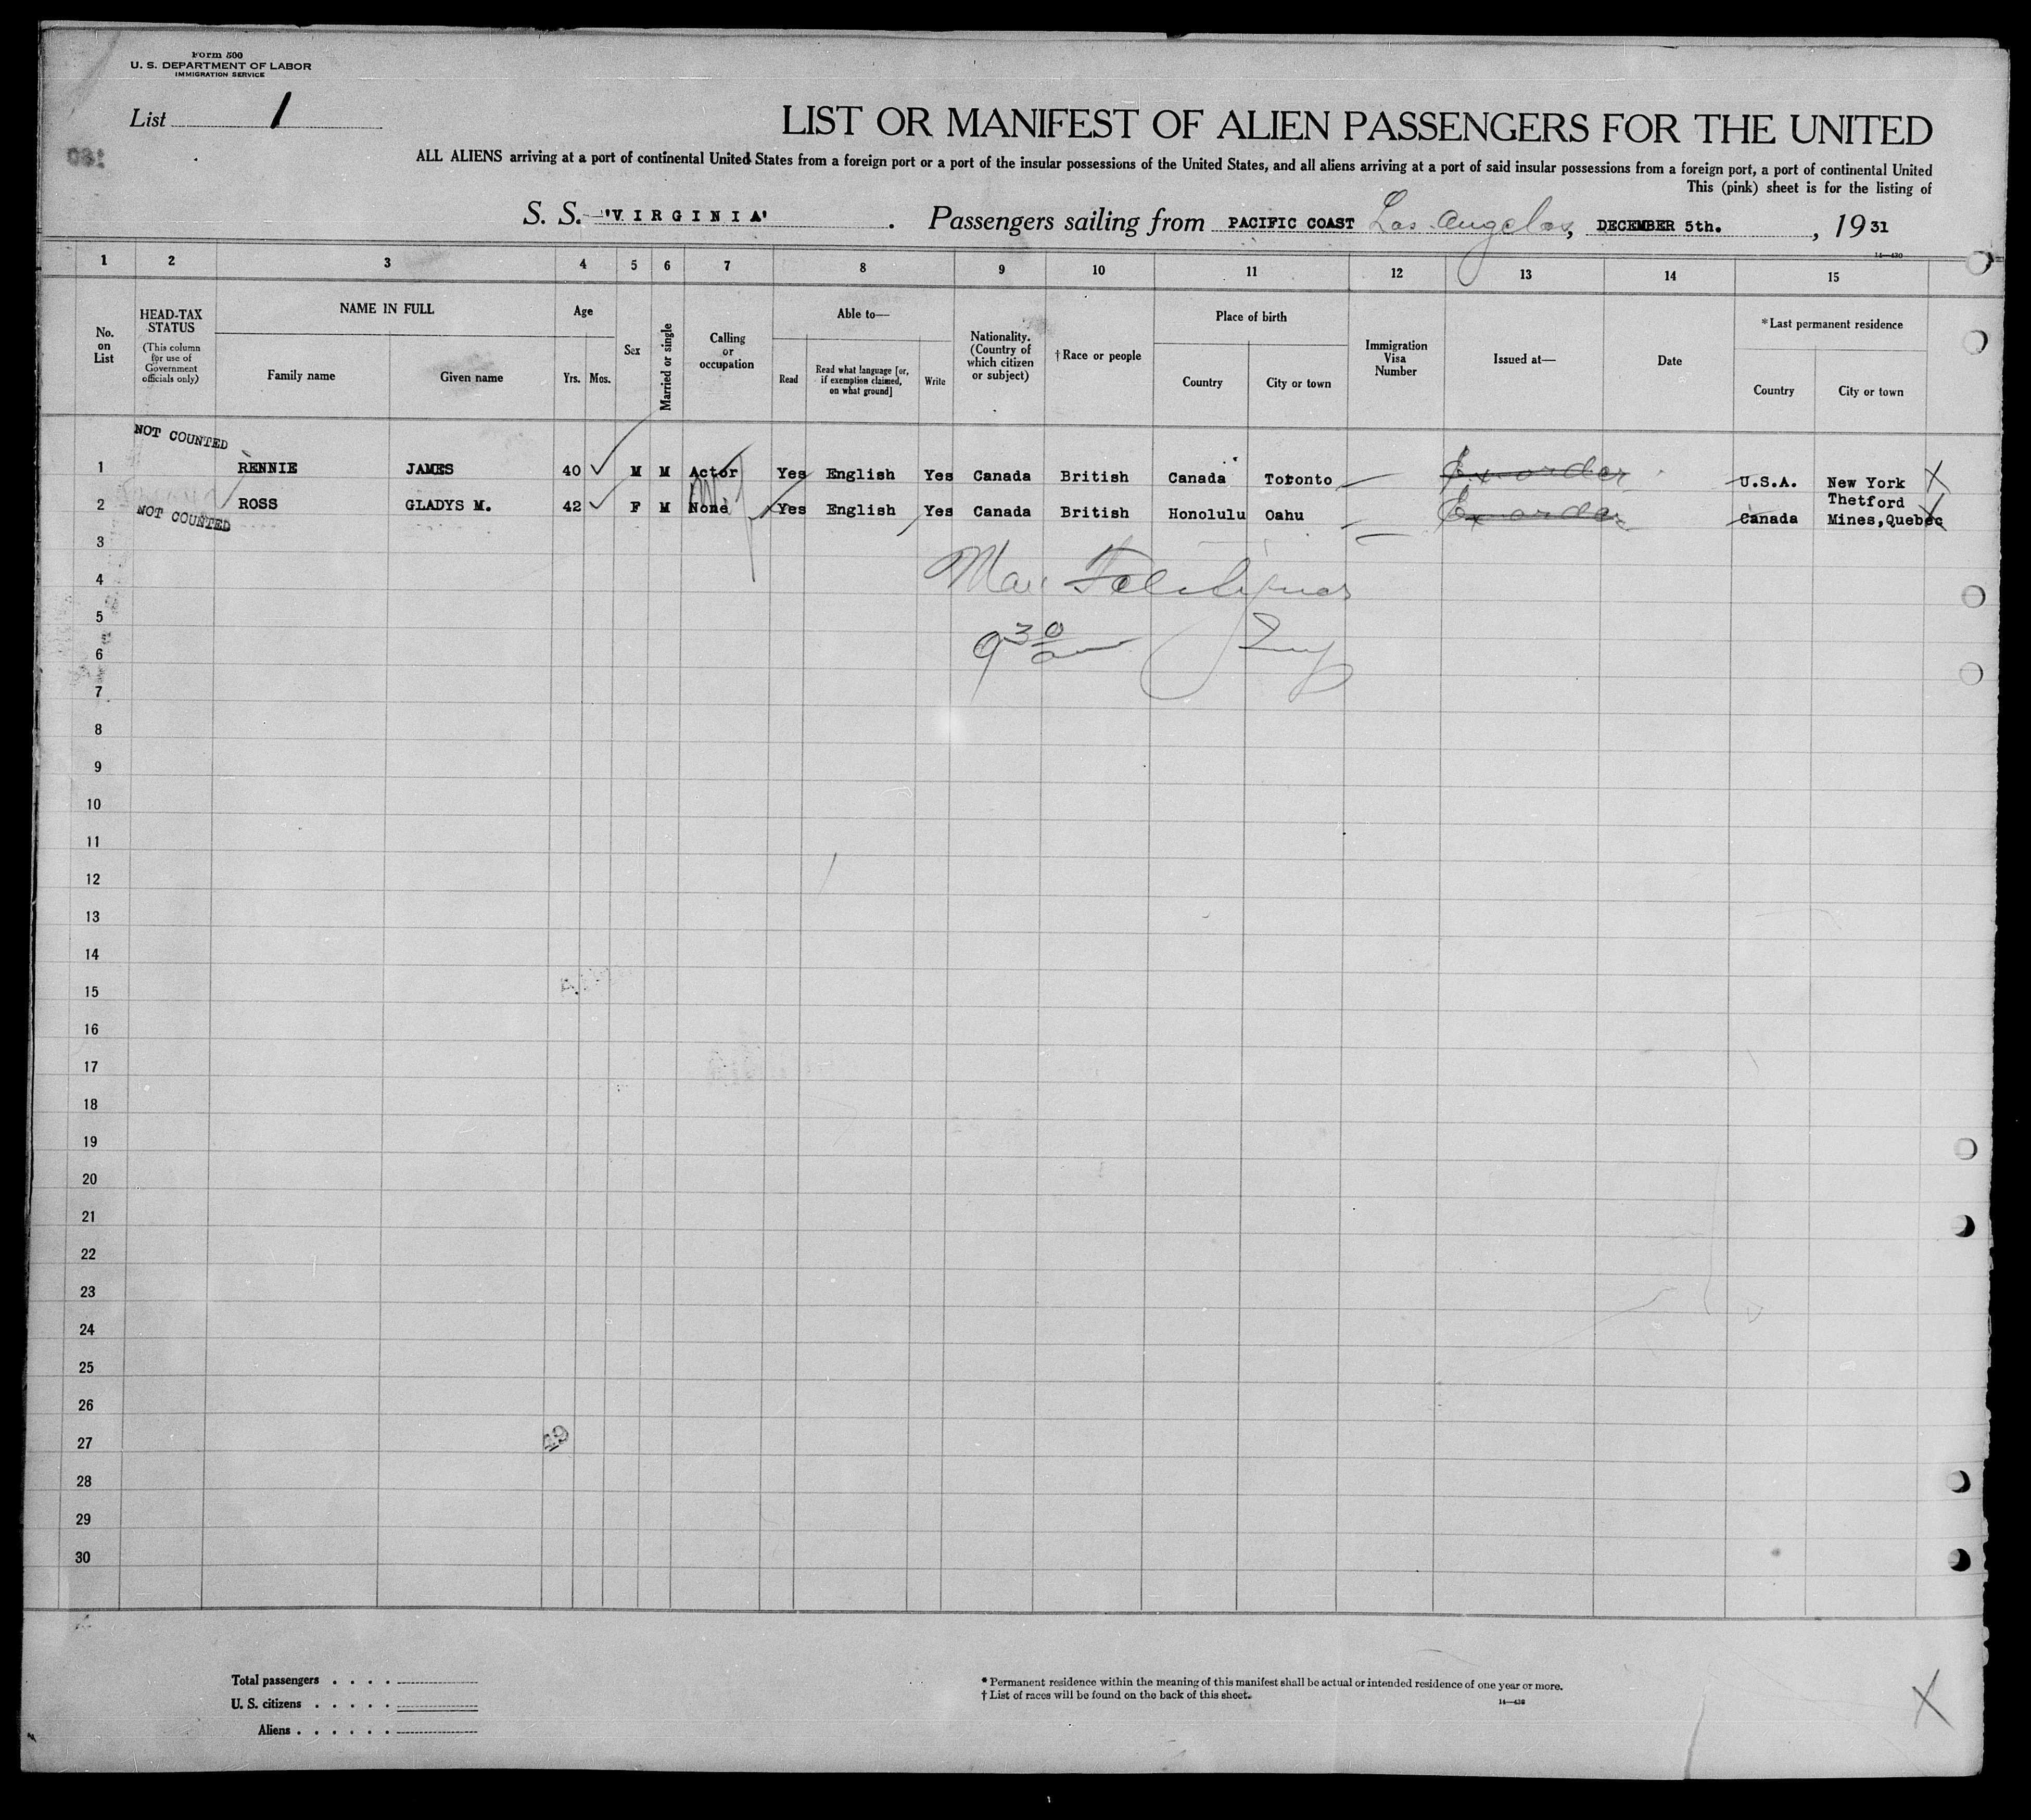 Form 500
U. S. DEPARTMENT OF LABOR
IMMIGRATION SERVICE
List 1
LIST OR MANIFEST OF ALIEN PASSENGERS FOR THE UNITED
ALL ALIENS arriving at a port of continental United States from a foreign port or a port of the insular possessions of the United States, and all aliens arriving at a port of said insular possessions from a foreign port, a port of continental United
This (pink) sheet is for the listing of
S. S. 'VIRGINIA' . Passengers sailing from PACIFIC COAST Los Angeles, DECEMBER 5th. , 1931
14—430
1 2 3 4 5 6 7 8 9 10 11 12 13 14 15
No. on List
HEAD-TAX STATUS
(This column for use of Government officials only)
NAME IN FULL
Family name
Given name
Age
Yrs. Mos.
Sex
Married or single
Calling or occupation
Able to—
Read
Read what language [or, if exemption claimed, on what ground]
Write
Nationality. (Country of which citizen or subject)
†Race or people
Place of birth
Country
City or town
Immigration Visa Number
Issued at—
Date
*Last permanent residence
Country
City or town
NOT COUNTED
1 RENNIE JAMES 40 M M Actor Yes English Yes Canada British Canada Toronto Ex order U.S.A. New York X
2 ROSS GLADYS M. 42 F M None Yes English Yes Canada British Honolulu Oahu Ex order Canada Thetford Mines,Quebec X
NOT COUNTED
3
4
5
6 9 30 am
7
8
9
10
11
12
13
14
15
16
17
18
19
20
21
22
23
24
25
26
27
28
29
30
Total passengers . . . .
U. S. citizens . . . . .
Aliens . . . . . .
* Permanent residence within the meaning of this manifest shall be actual or intended residence of one year or more.
† List of races will be found on the back of this sheet.
14—430
X